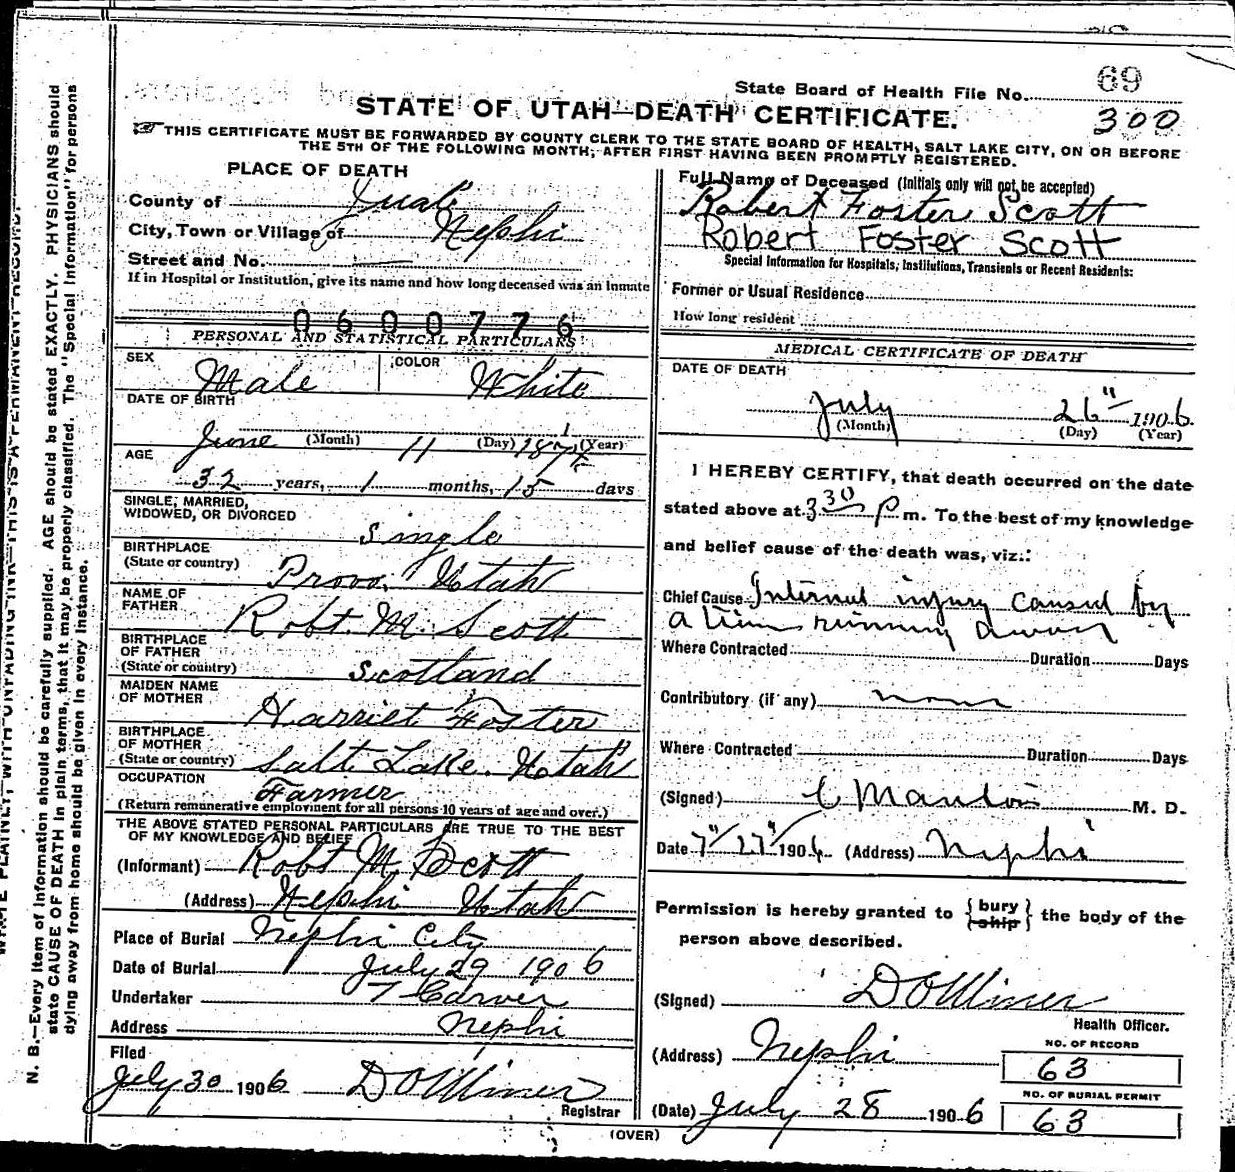 State Board of Health File No. 69
STATE OF UTAH—DEATH CERTIFICATE.
300
THIS CERTIFICATE MUST BE FORWARDED BY COUNTY CLERK TO THE STATE BOARD OF HEALTH, SALT LAKE CITY, ON OR BEFORE
THE 5TH OF THE FOLLOWING MONTH, AFTER FIRST HAVING BEEN PROMPTLY REGISTERED.
PLACE OF DEATH
County of Juab
City, Town or Village of Nephi
Street and No.
If in Hospital or Institution, give its name and how long deceased was an Inmate
0600776
PERSONAL AND STATISTICAL PARTICULARS
SEX Male COLOR White
DATE OF BIRTH
June (Month) 11 (Day) 187 (Year)
AGE
32 years, 1 months, 15 days
SINGLE, MARRIED,
WIDOWED, OR DIVORCED
Single
BIRTHPLACE
(State or country) Provo, Utah
NAME OF
FATHER Robt. M. Scott
BIRTHPLACE
OF FATHER
(State or country) Scotland
MAIDEN NAME
OF MOTHER Harriet Foster
BIRTHPLACE
OF MOTHER
(State or country) Salt Lake. Utah
OCCUPATION Farmer
(Return remunerative employment for all persons 10 years of age and over.)
THE ABOVE STATED PERSONAL PARTICULARS ARE TRUE TO THE BEST
OF MY KNOWLEDGE AND BELIEF
(Informant) Robt M. Scott
(Address) Nephi Utah
Place of Burial Nephi City
Date of Burial July 29 1906
Undertaker T Carver
Address Nephi
Filed
July 30 1906 D O Miner
Registrar
Full Name of Deceased (Initials only will not be accepted)
Robert Foster Scott
Robert Foster Scott
Special Information for Hospitals, Institutions, Transients or Recent Residents:
Former or Usual Residence
How long resident
MEDICAL CERTIFICATE OF DEATH
DATE OF DEATH
July 26" 1906
(Month) (Day) (Year)
I HEREBY CERTIFY, that death occurred on the date
stated above at 3 30 P m. To the best of my knowledge
and belief cause of the death was, viz.:
Chief Cause Internal injury caused by
a running away
Where Contracted Duration Days
Contributory (if any) none
Where Contracted Duration Days
(Signed) M. D.
Date 7" 27" 1906 (Address) Nephi
Permission is hereby granted to {bury
ship} the body of the
person above described.
(Signed) D O Miner
Health Officer.
(Address) Nephi
NO. OF RECORD
63
NO. OF BURIAL PERMIT
(Date) July 28 1906 63
(OVER)
N. B.—Every item of information should be carefully supplied. AGE should be stated EXACTLY. PHYSICIANS should
state CAUSE OF DEATH in plain terms, that it may be properly classified. The "Special Information" for persons
dying away from home should be given in every instance.